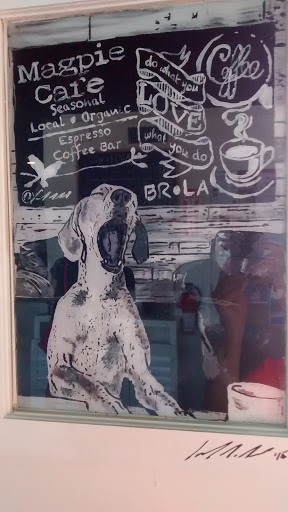 Magpie
Cafe
Seasonal
Local • Organic
Espresso
Coffee Bar
do what you
LOVE
what you do
Coffee
BR•LA
'16